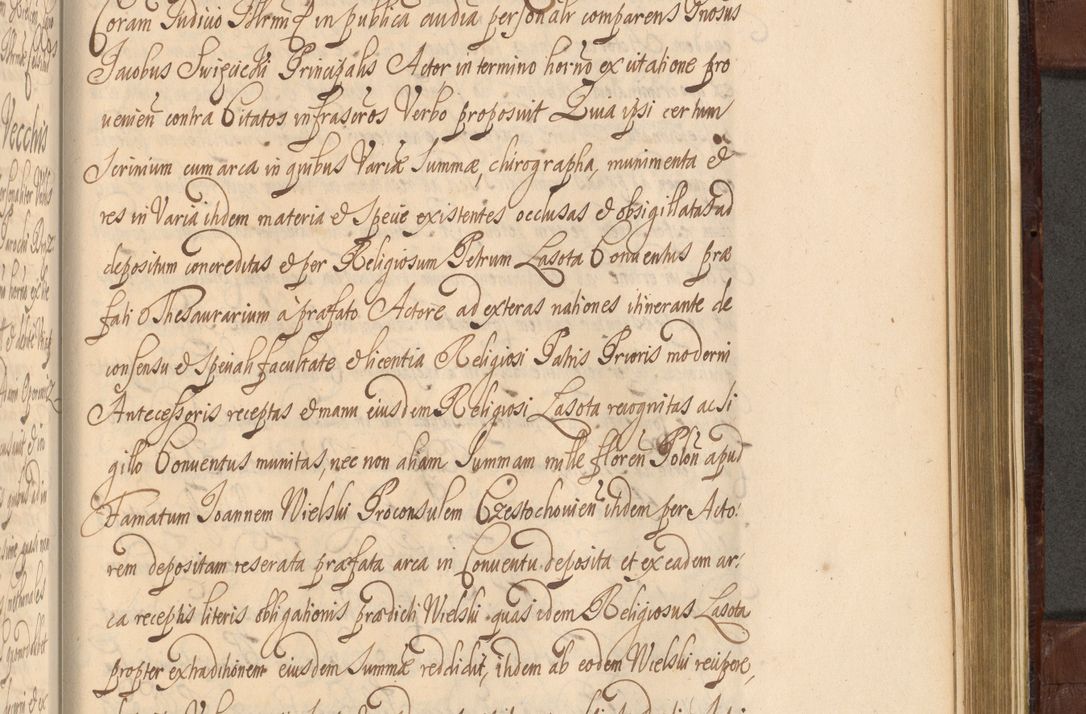 Coram Iudicio Illrmi in publica audia personalr comparens Gnosus
Iacobus Swięcicki Principalis Actor in termino horno ex citatione pro
venien contra Citatos infrascros Verbo proposuit Quia ipsi certum
Scrinium cum arca in quibus Variæ Summæ, chirographa, munimenta &
res in Varia itidem materia & specie existentes occlusas & obsigillatas ad
depositum concreditas & per Religiosum Petrum Lasota Conventus præ
fati Thesaurarium à præfato Actore ad exteras nationes itinerante de
consensu & speciali facultate & licentia Religiosi Patris Prioris moderni
Antecessoris receptas & manu eiusdem Religiosi Lasota recognitas ac si
gillo Conventus munitas, nec non aliam Summam mille floren Polon apud
Famatum Joannem Wielski Proconsulem Czestochovien itidem per Acto
rem depositam reserata præfata arca in Conventu deposita et ex eadem ar:
ca receptis literis obligationis prædicti Wielski quas idem Religiosus Lasota
propter extraditionem eiusdem summæ reddidit, itidem ab eodem Wielski recipere,